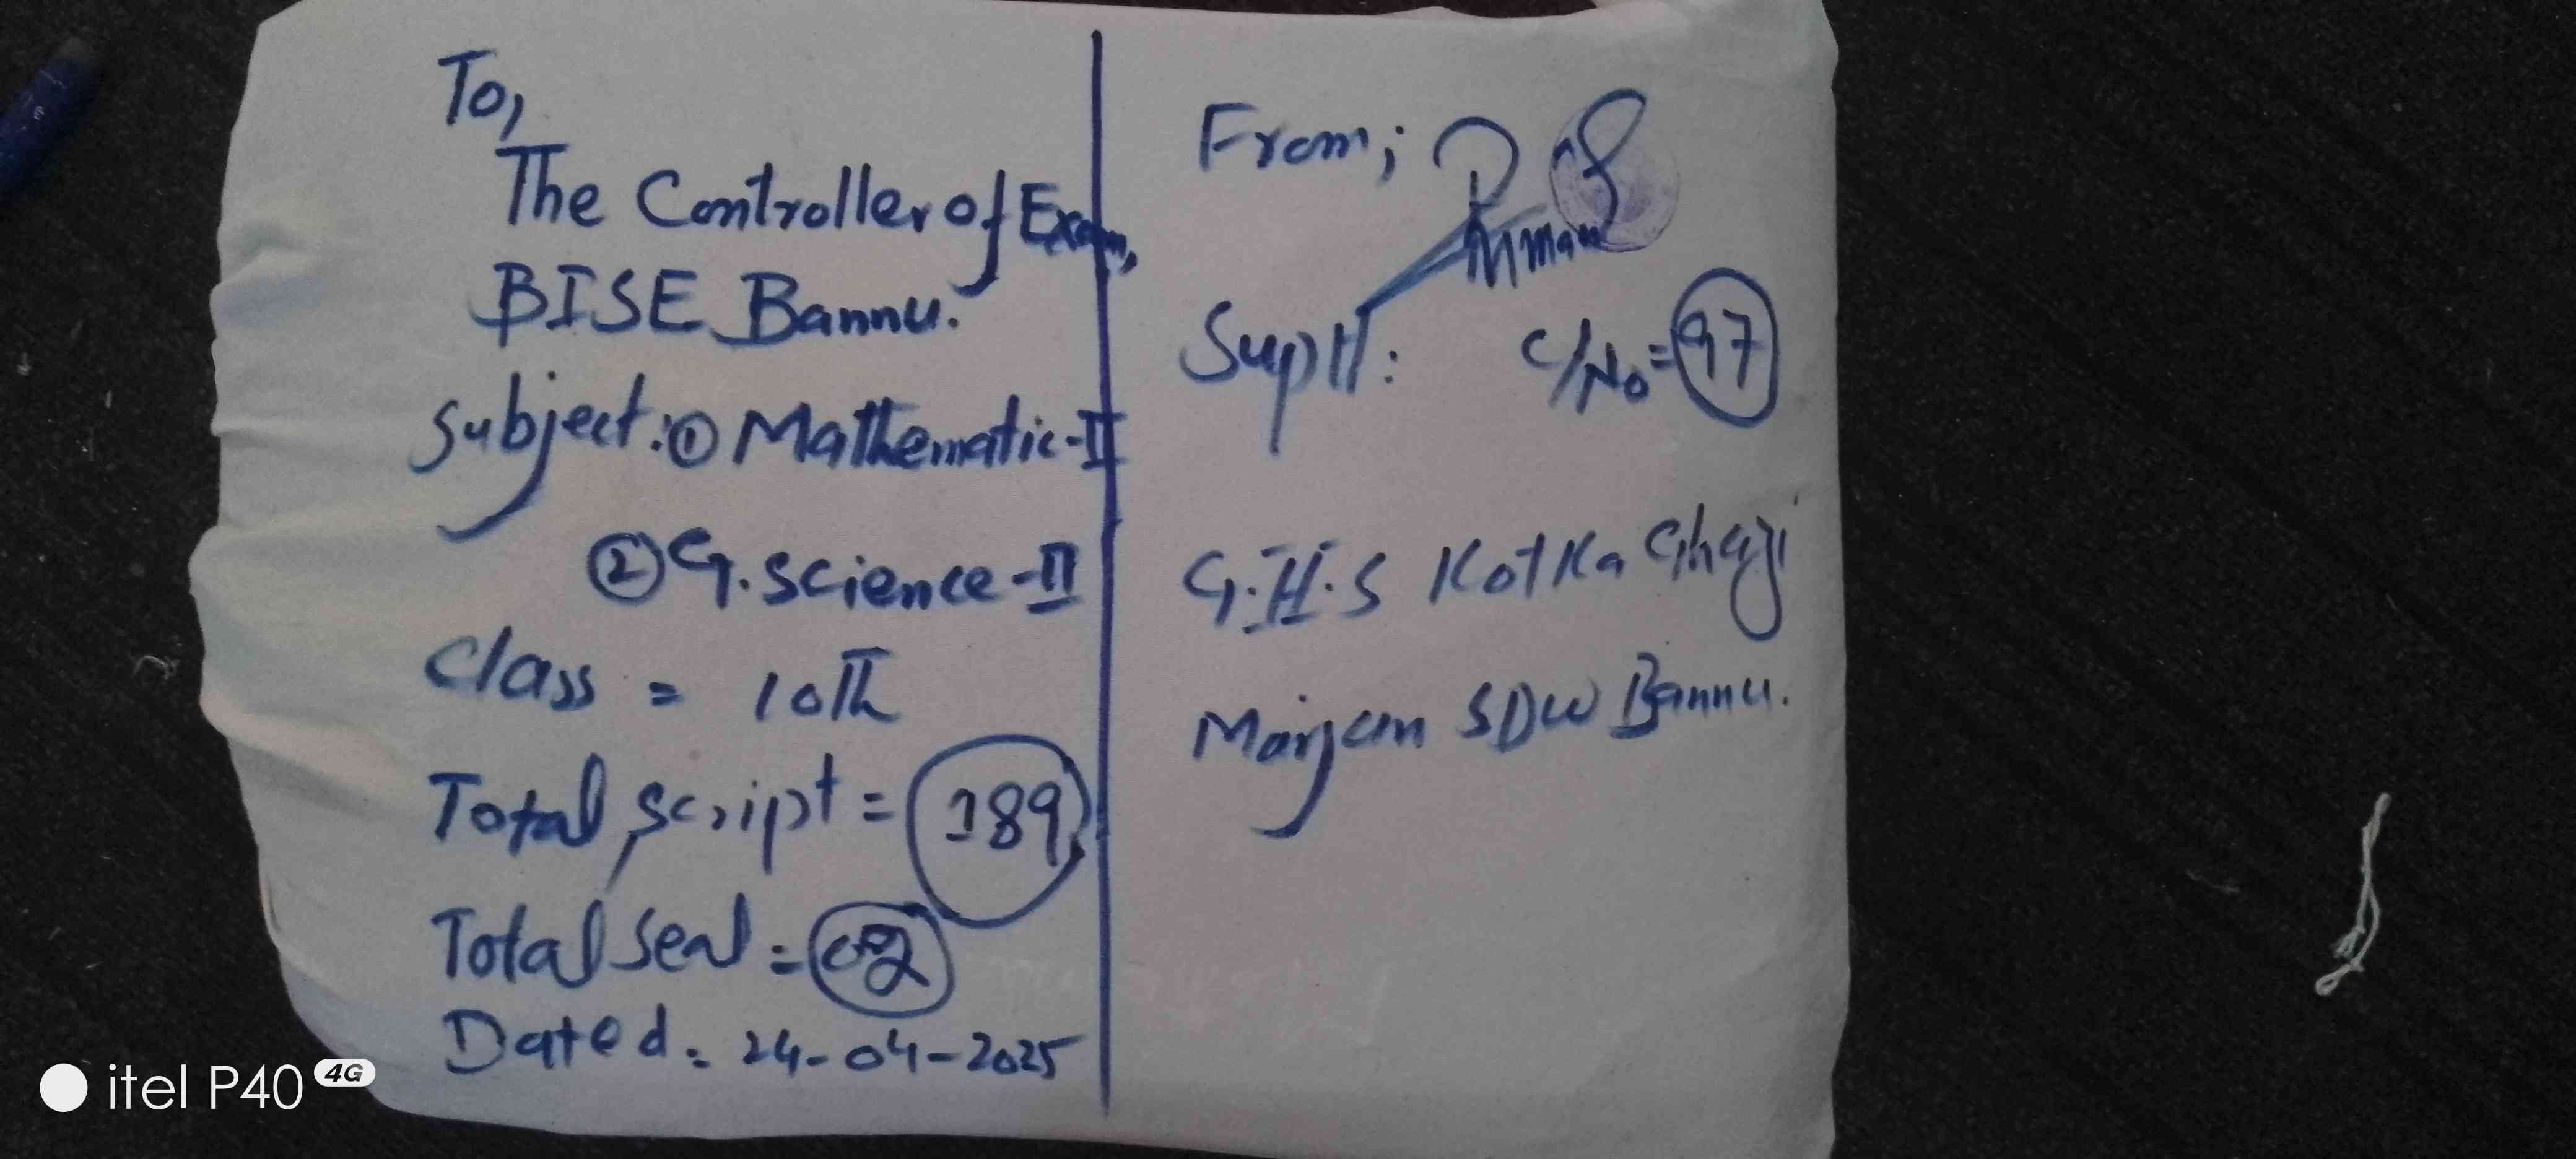 To,
The Controller of Exam,
BISE Bannu.
Subject: ① Mathematic-II
② G.Science-II
Class = 10th
Total script = 189
Total seal = 02
Dated = 24-04-2025
From;
Supdt: C/No = 97
G.H.S Kotka Ghazi
Marjan SDW Bannu.
itel P40 4G